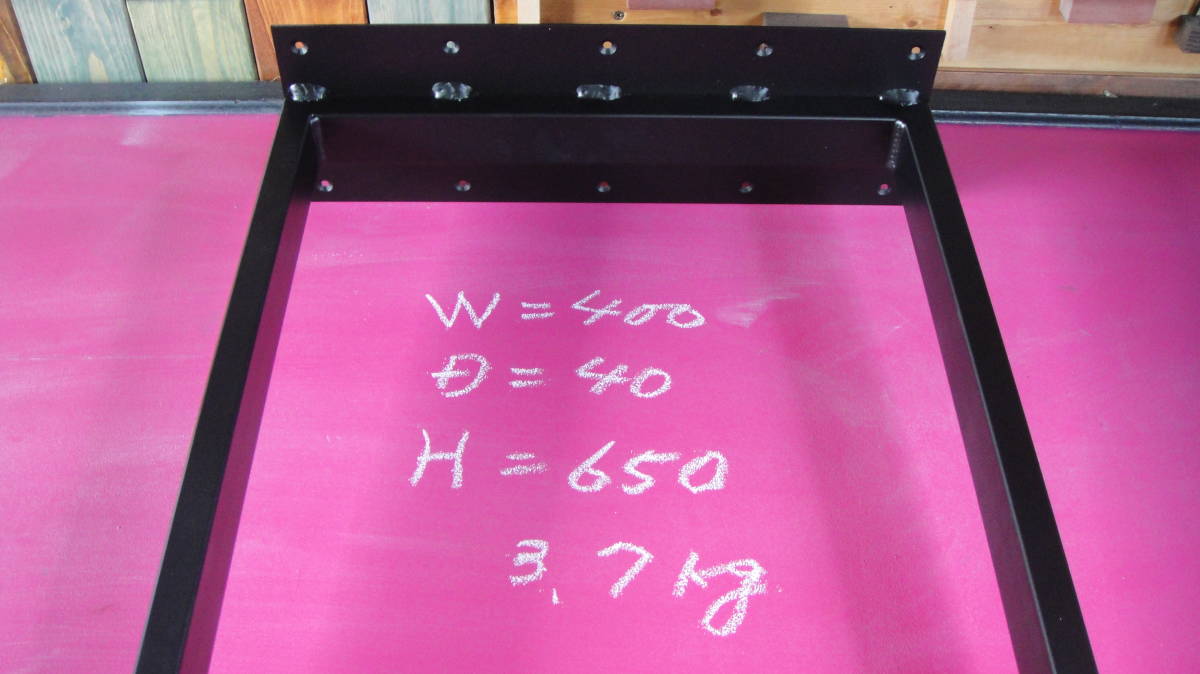 W = 400
D = 40
H = 650
3.7kg